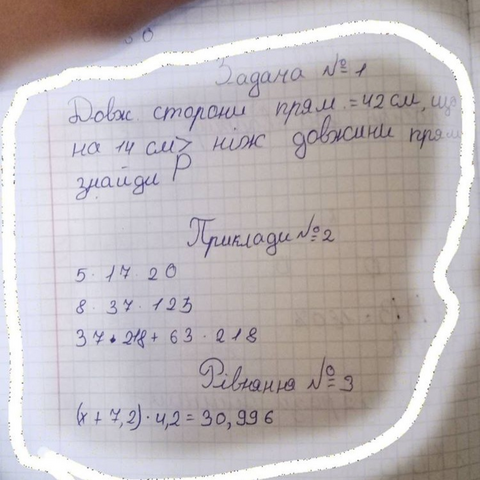 Задача №1
Довж. сторони прям. = 42 см, що
на 14 см > ніж довжини прям
знайди P
Приклади №2
5 · 17 · 20
8 · 37 · 125
37 · 218 + 63 · 218
Рівняння №3
(x + 7,2) · 4,2 = 30,996